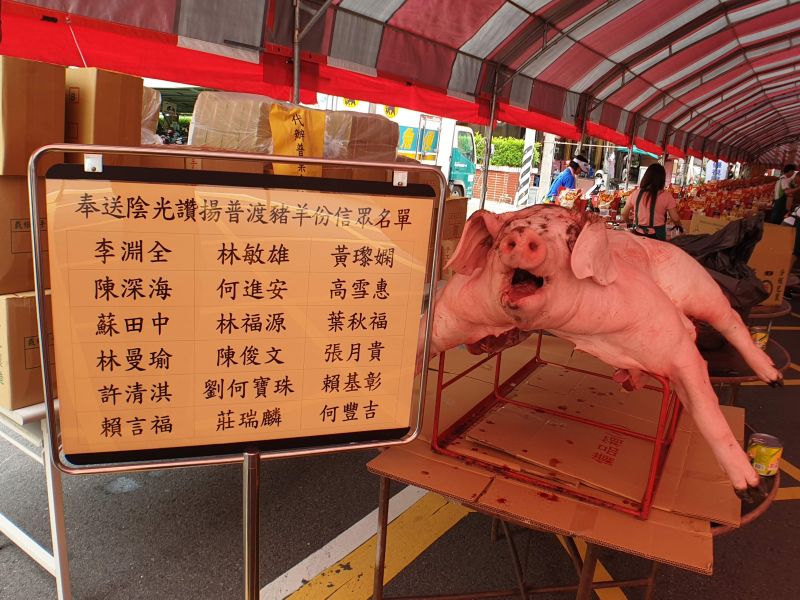 奉送陰光讚揚普渡豬羊份信眾名單
李淵全 林敏雄 黃璨嫻
陳深海 何進安 高雪惠
蘇田中 林福源 葉秋福
林曼瑜 陳俊文 張月貴
許清淇 劉何寶珠 賴基彰
賴言福 莊瑞麟 何豐吉
代辦普